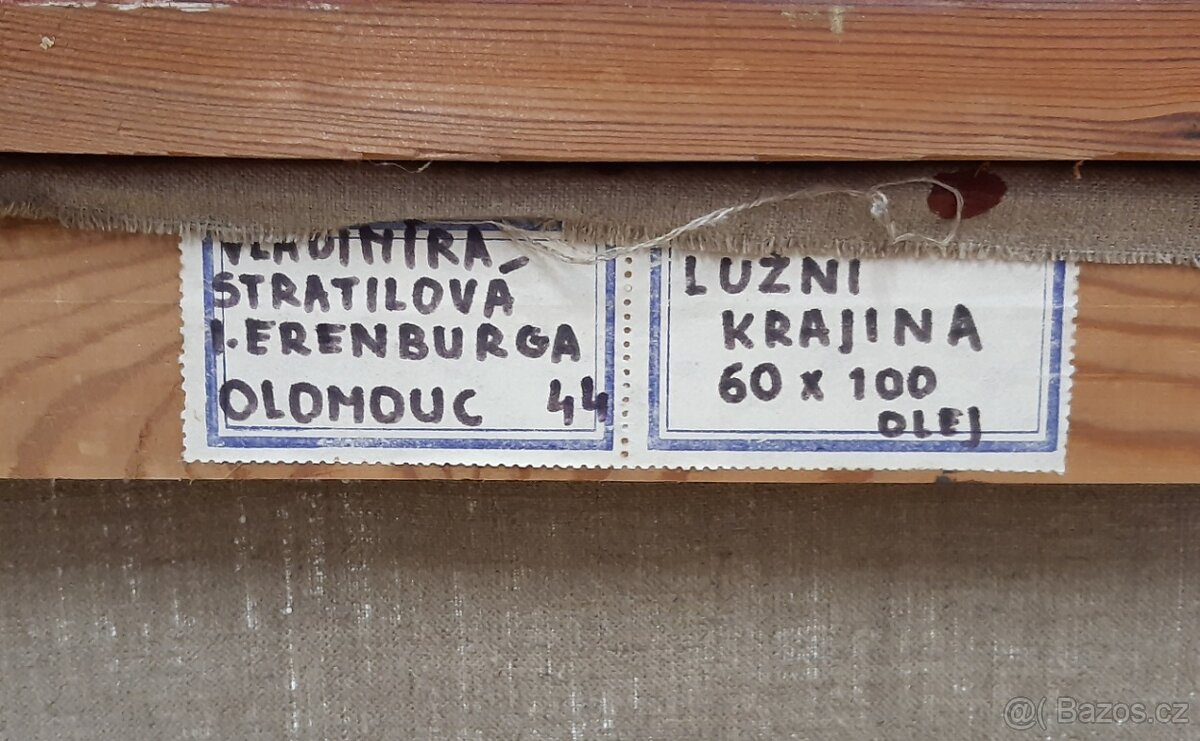 VLADIMÍRA
STRATILOVÁ
I. ERENBURGA
OLOMOUC 44
LUŽNI
KRAJINA
60 x 100
OLEJ
@( Bazos.cz